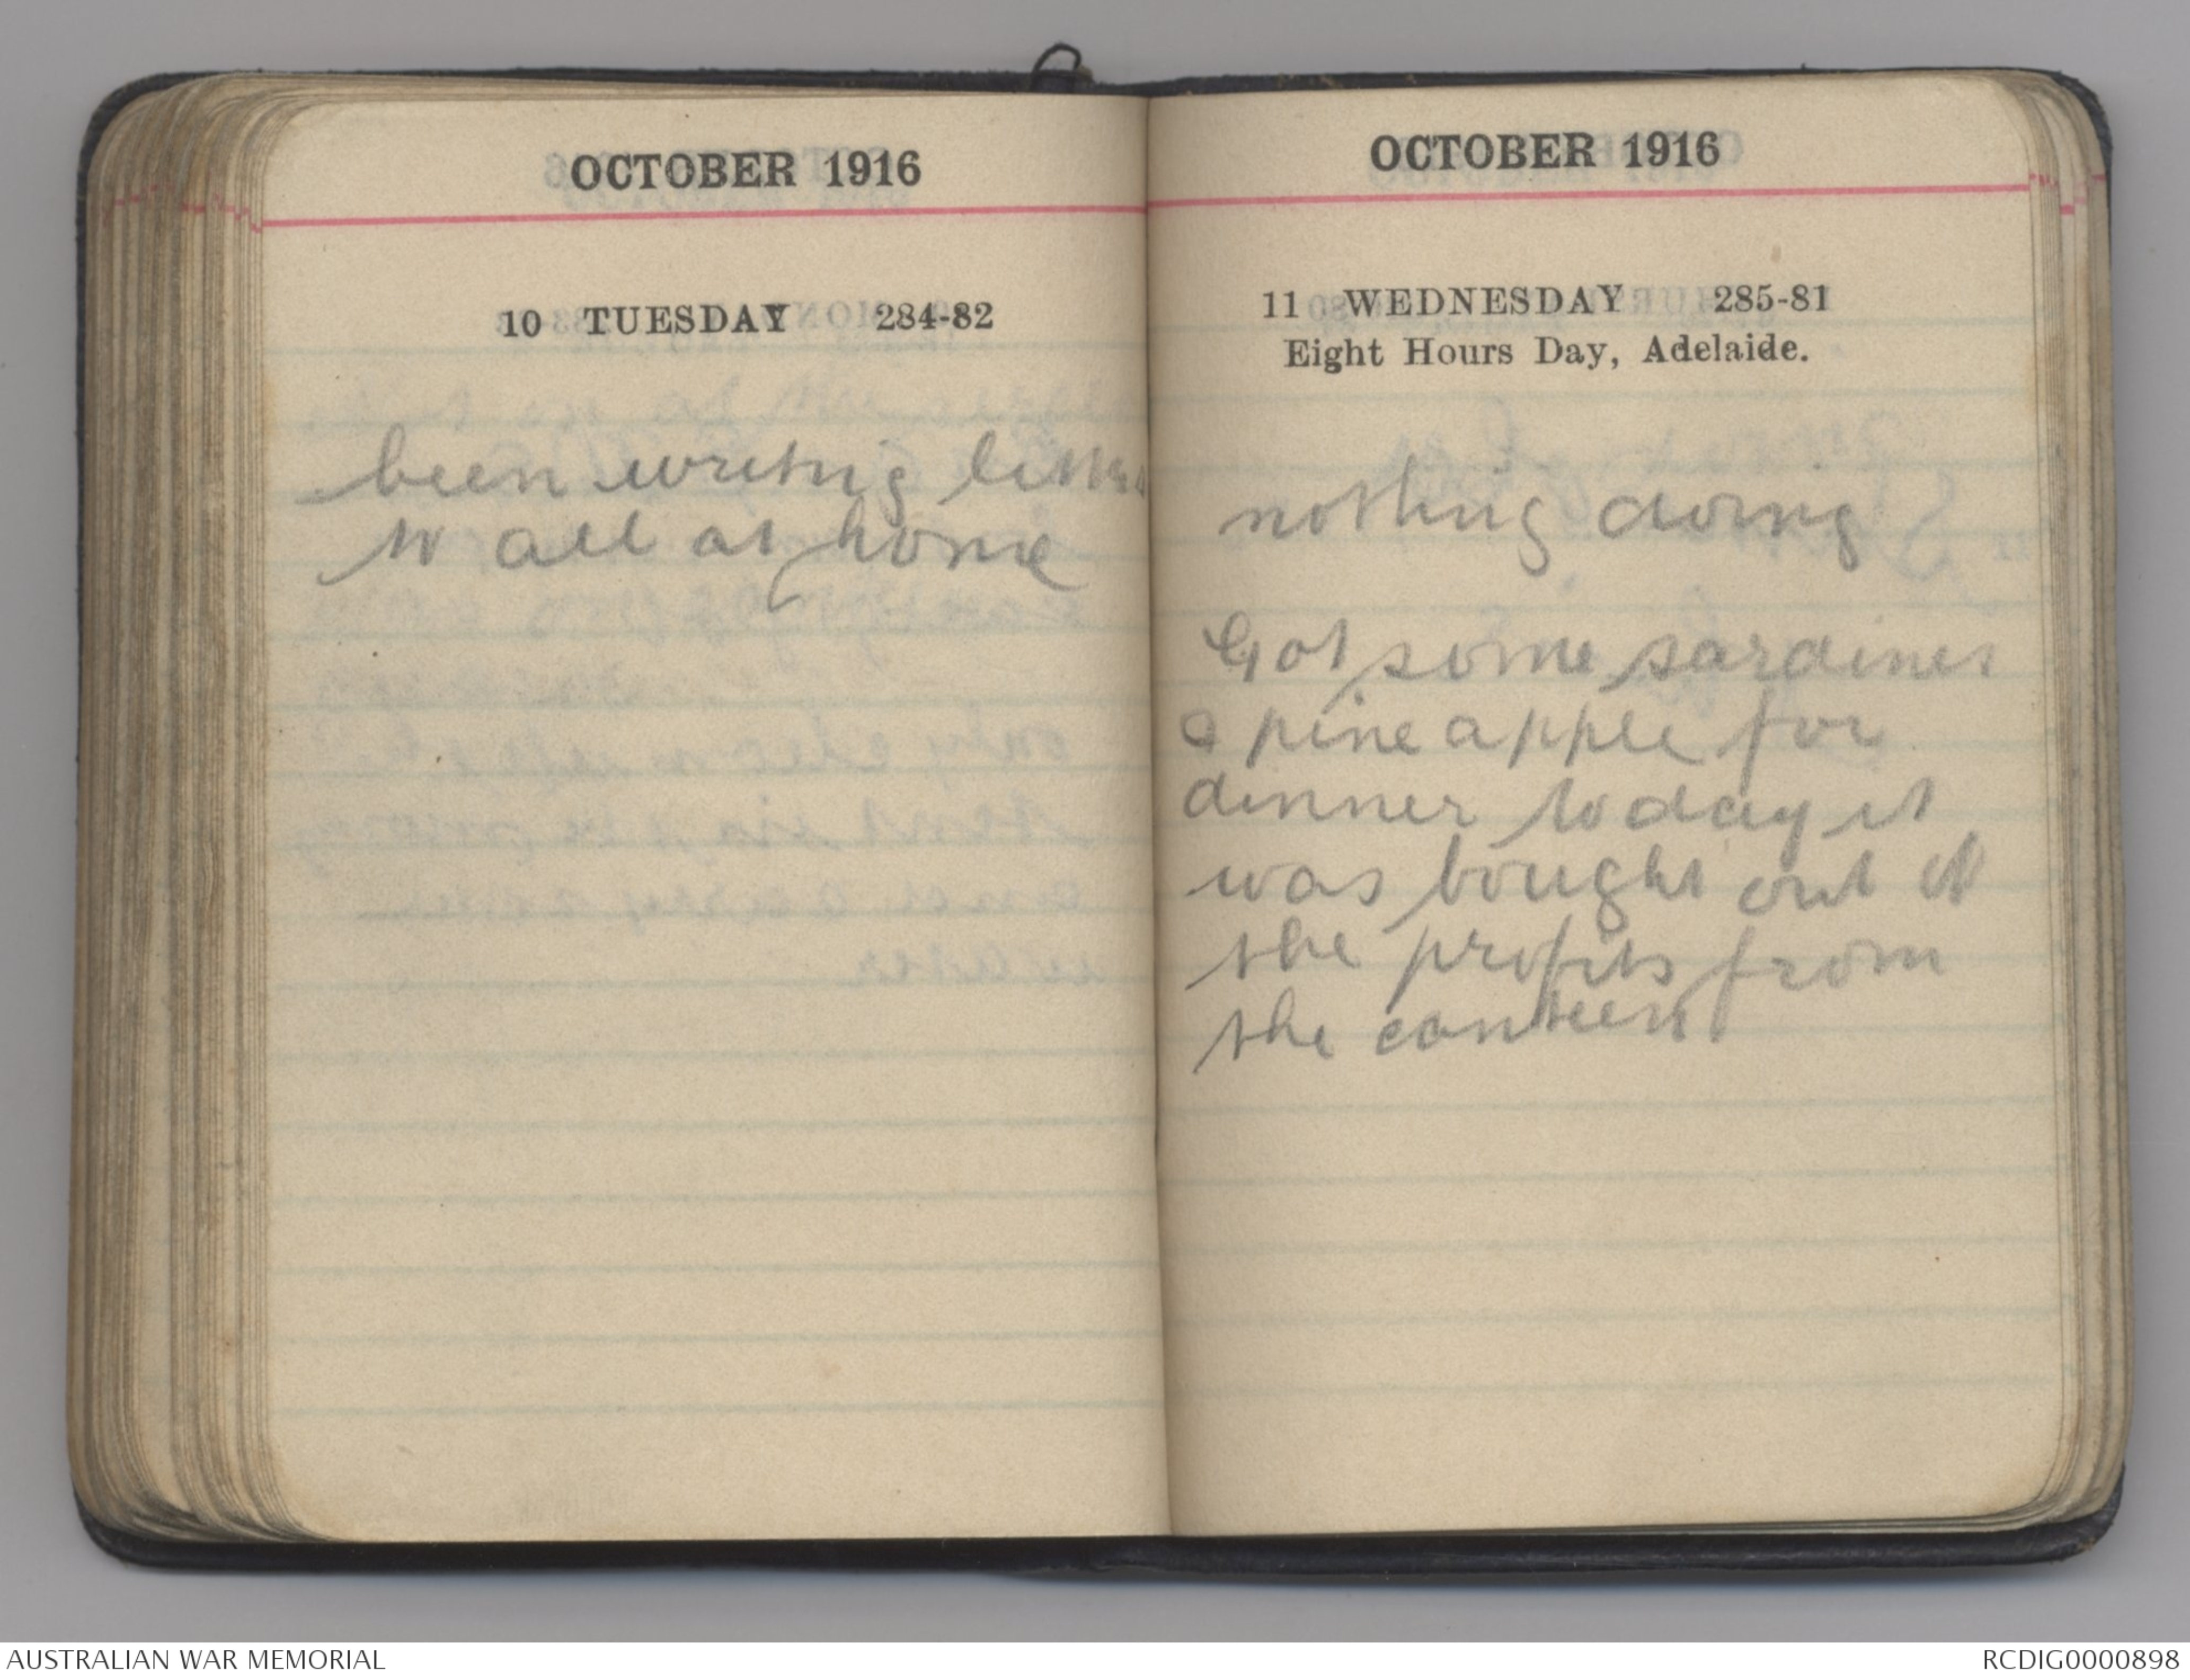 OCTOBER 1916
10 TUESDAY 284-82
been writing letters
to all at home
OCTOBER 1916
11 WEDNESDAY 285-81
Eight Hours Day, Adelaide.
nothing doing
Got some sardines
& pine apple for
dinner to day it
was bought out of
the profits from
the canteen
AUSTRALIAN WAR MEMORIAL
RCDIG0000898